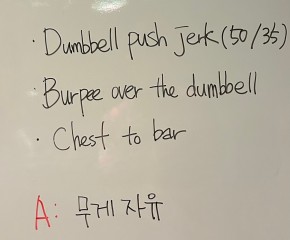 · Dumbbell push jerk (50/35)
· Burpee over the dumbbell
· Chest to bar
A: 무게 자유